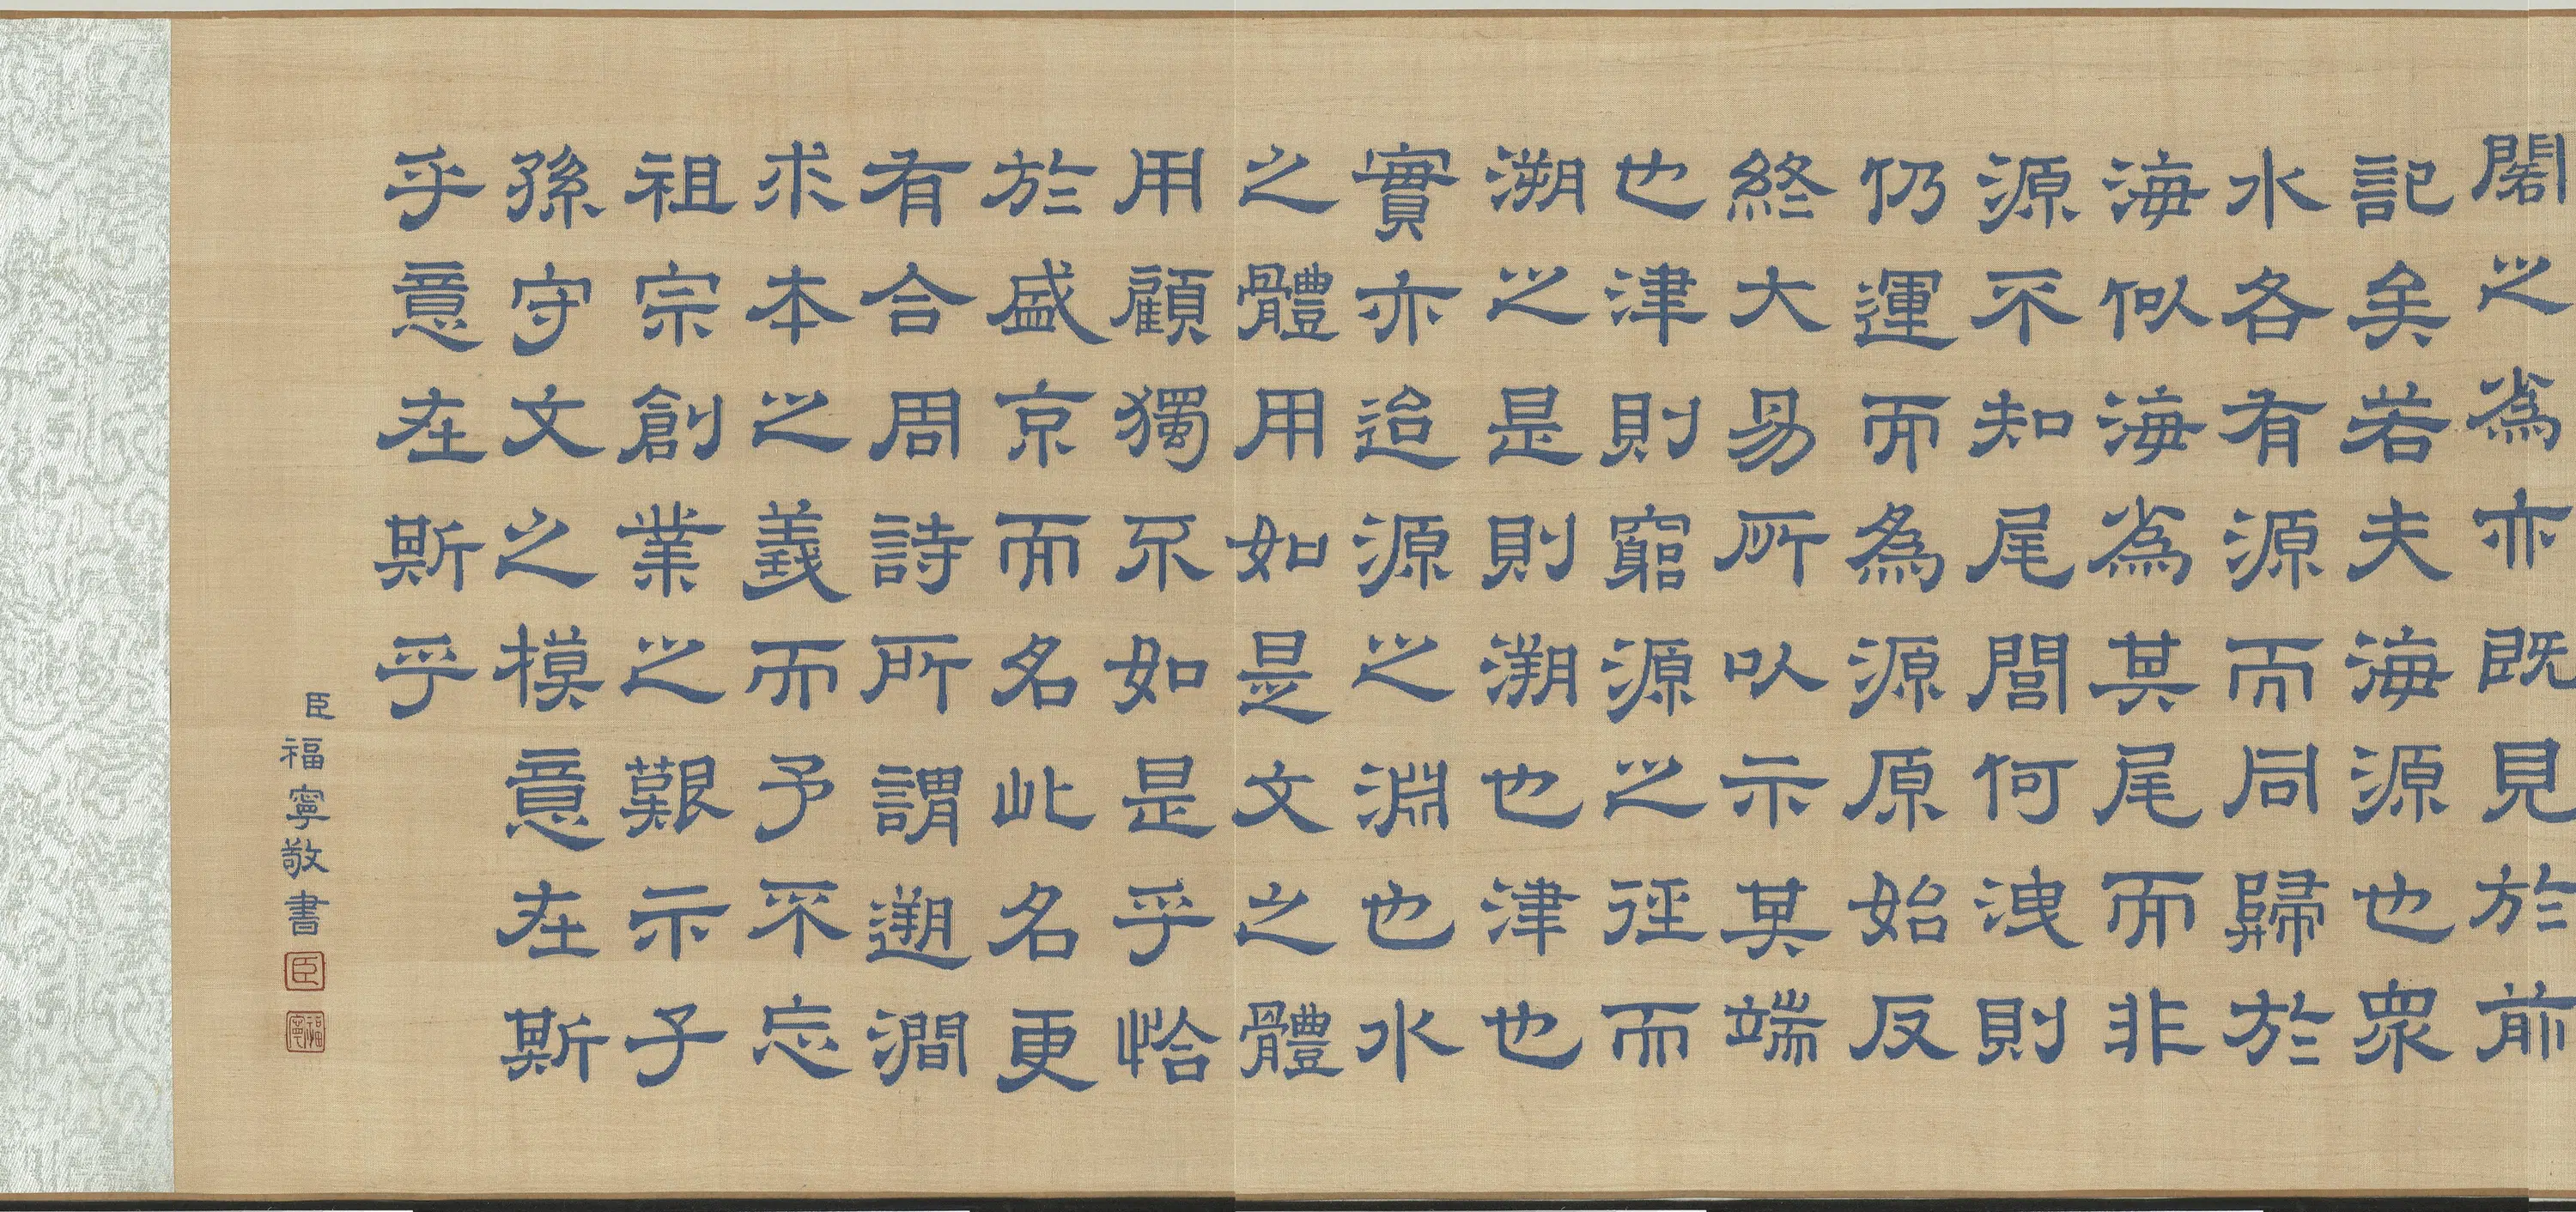 閣之為亦既見於前
記矣若夫海源也眾
水各有源而同歸於
海似海為其尾而非
源不知尾閭何洩則
仍運而為源原始反
終大易所以示其端
也津則窮源之徑而
溯之是則溯也津也
實亦迨源之淵也水
之體用如是文之體
用顧獨不如是乎恰
於盛京而名此名更
有合周詩所謂遡澗
求本之義而予不忘
祖宗創業之艱示子
孫守文之模意在斯
乎意在斯乎
臣福寧敬書
臣
福寧